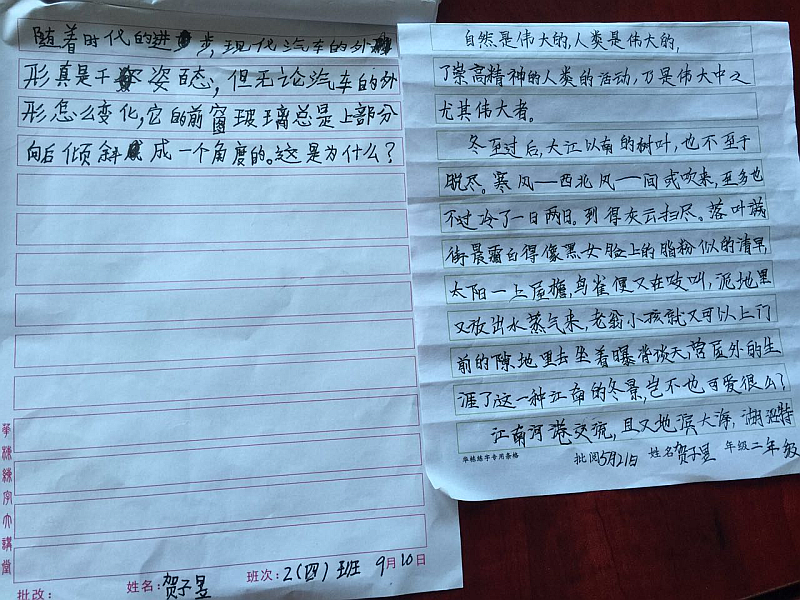 随着时代的进步,现代汽车的外
形真是千姿百态,但无论汽车的外
形怎么变化,它的前窗玻璃总是上部分
向后倾斜成一个角度的。这是为什么?
华栋练字大讲堂
批改:
姓名:贺子昱
班次:2(四)班 9月10日
自然是伟大的,人类是伟大的,
了崇高精神的人类的活动,乃是伟大中之
尤其伟大者。
冬至过后,大江以南的树叶,也不至于
脱尽。寒风—西北风—间或吹来,至多也
不过冷了一日两日。到得灰云扫尽。落叶满
街晨霜白得像黑女脸上的脂粉似的清早,
太阳一上屋檐,鸟雀便又在吱叫,泥地里
又放出水蒸气来,老翁小孩就又可以上门
前的隙地里去坐着曝背谈天,营屋外的生
涯了这一种江南的冬景,岂不也可爱很么?
江南河港交流,且又地滨大海,湖沼特
华栋练字专用条格
批阅5月21日 姓名贺子昱 年级二年级